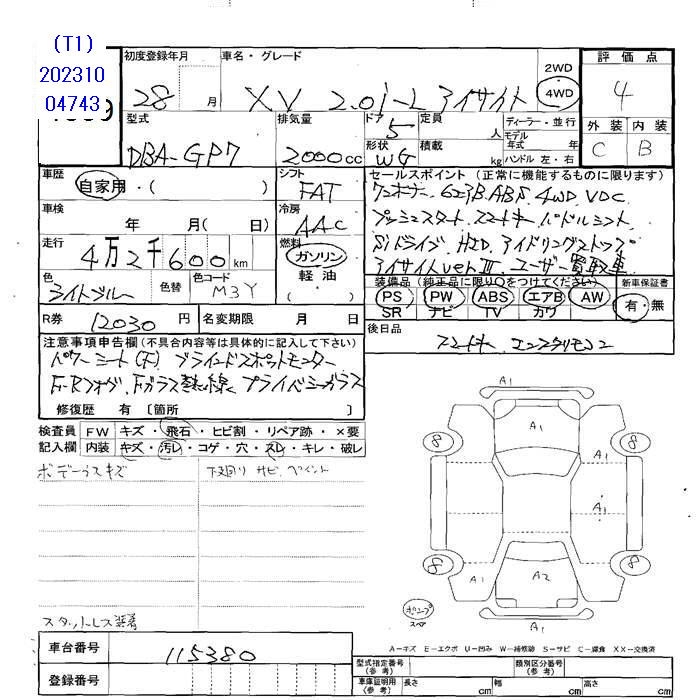 (T1)
202310
04743
初度登録年月
28 月
車名・グレード
XV 2.0i-L アイサイト
2WD
4WD
評価点
4
外装 内装
C B
型式
DBA-GP7
排気量
2000 cc
ドア
5
定員
人
形状
WG
積載
kg
ディーラー・並行
モデル
年式 年
ハンドル 左・右
車歴
自家用・( )
シフト
FAT
セールスポイント (正常に機能するものに限ります)
ワンオーナー 623B.ABS 4WD VDC
プッシュスタート スマートキー パドルシフト
SIドライブ HID アイドリングストップ
アイサイトver.Ⅲ ユーザー買取車
車検
年 月( 日)
冷房
AAC
走行
4万2千600km
燃料
ガソリン
軽油
( )
色
ライトブルー
色替
色コード
M3Y
装備品 (純正品に限り○をつけてください)
PS PW ABS エアB AW
SR ナビ TV カワ
新車保証書
有・無
R券
12030 円
名変期限 月 日
後日品
スマートキー エンスタリモコン
注意事項申告欄(不具合内容等は具体的に記入して下さい)
パワーシート(F) ブラインドスポットモニター
F・Rフォグ、Fガラス熱線 プライバシーガラス
修復歴 有 〔箇所 〕
検査員
記入欄
FW キズ・飛石・ヒビ割・リペア跡・×要
内装 キズ・汚レ・コゲ・穴・スレ・キレ・破レ
ボデーラスキズ
下回り サビ、ペイント
スタットレス装着
A1
A1
8
8
A1
A1
8
8
A1
A2
A1
スペア
A-キズ E-エクボ U-凹み W-補修跡 S-サビ C-腐食 XX-交換済
車台番号
115380
登録番号
型式指定番号
(参考)
類別区分番号
(参考)
車庫証明用
(参考)
長さ cm 幅 cm 高さ cm